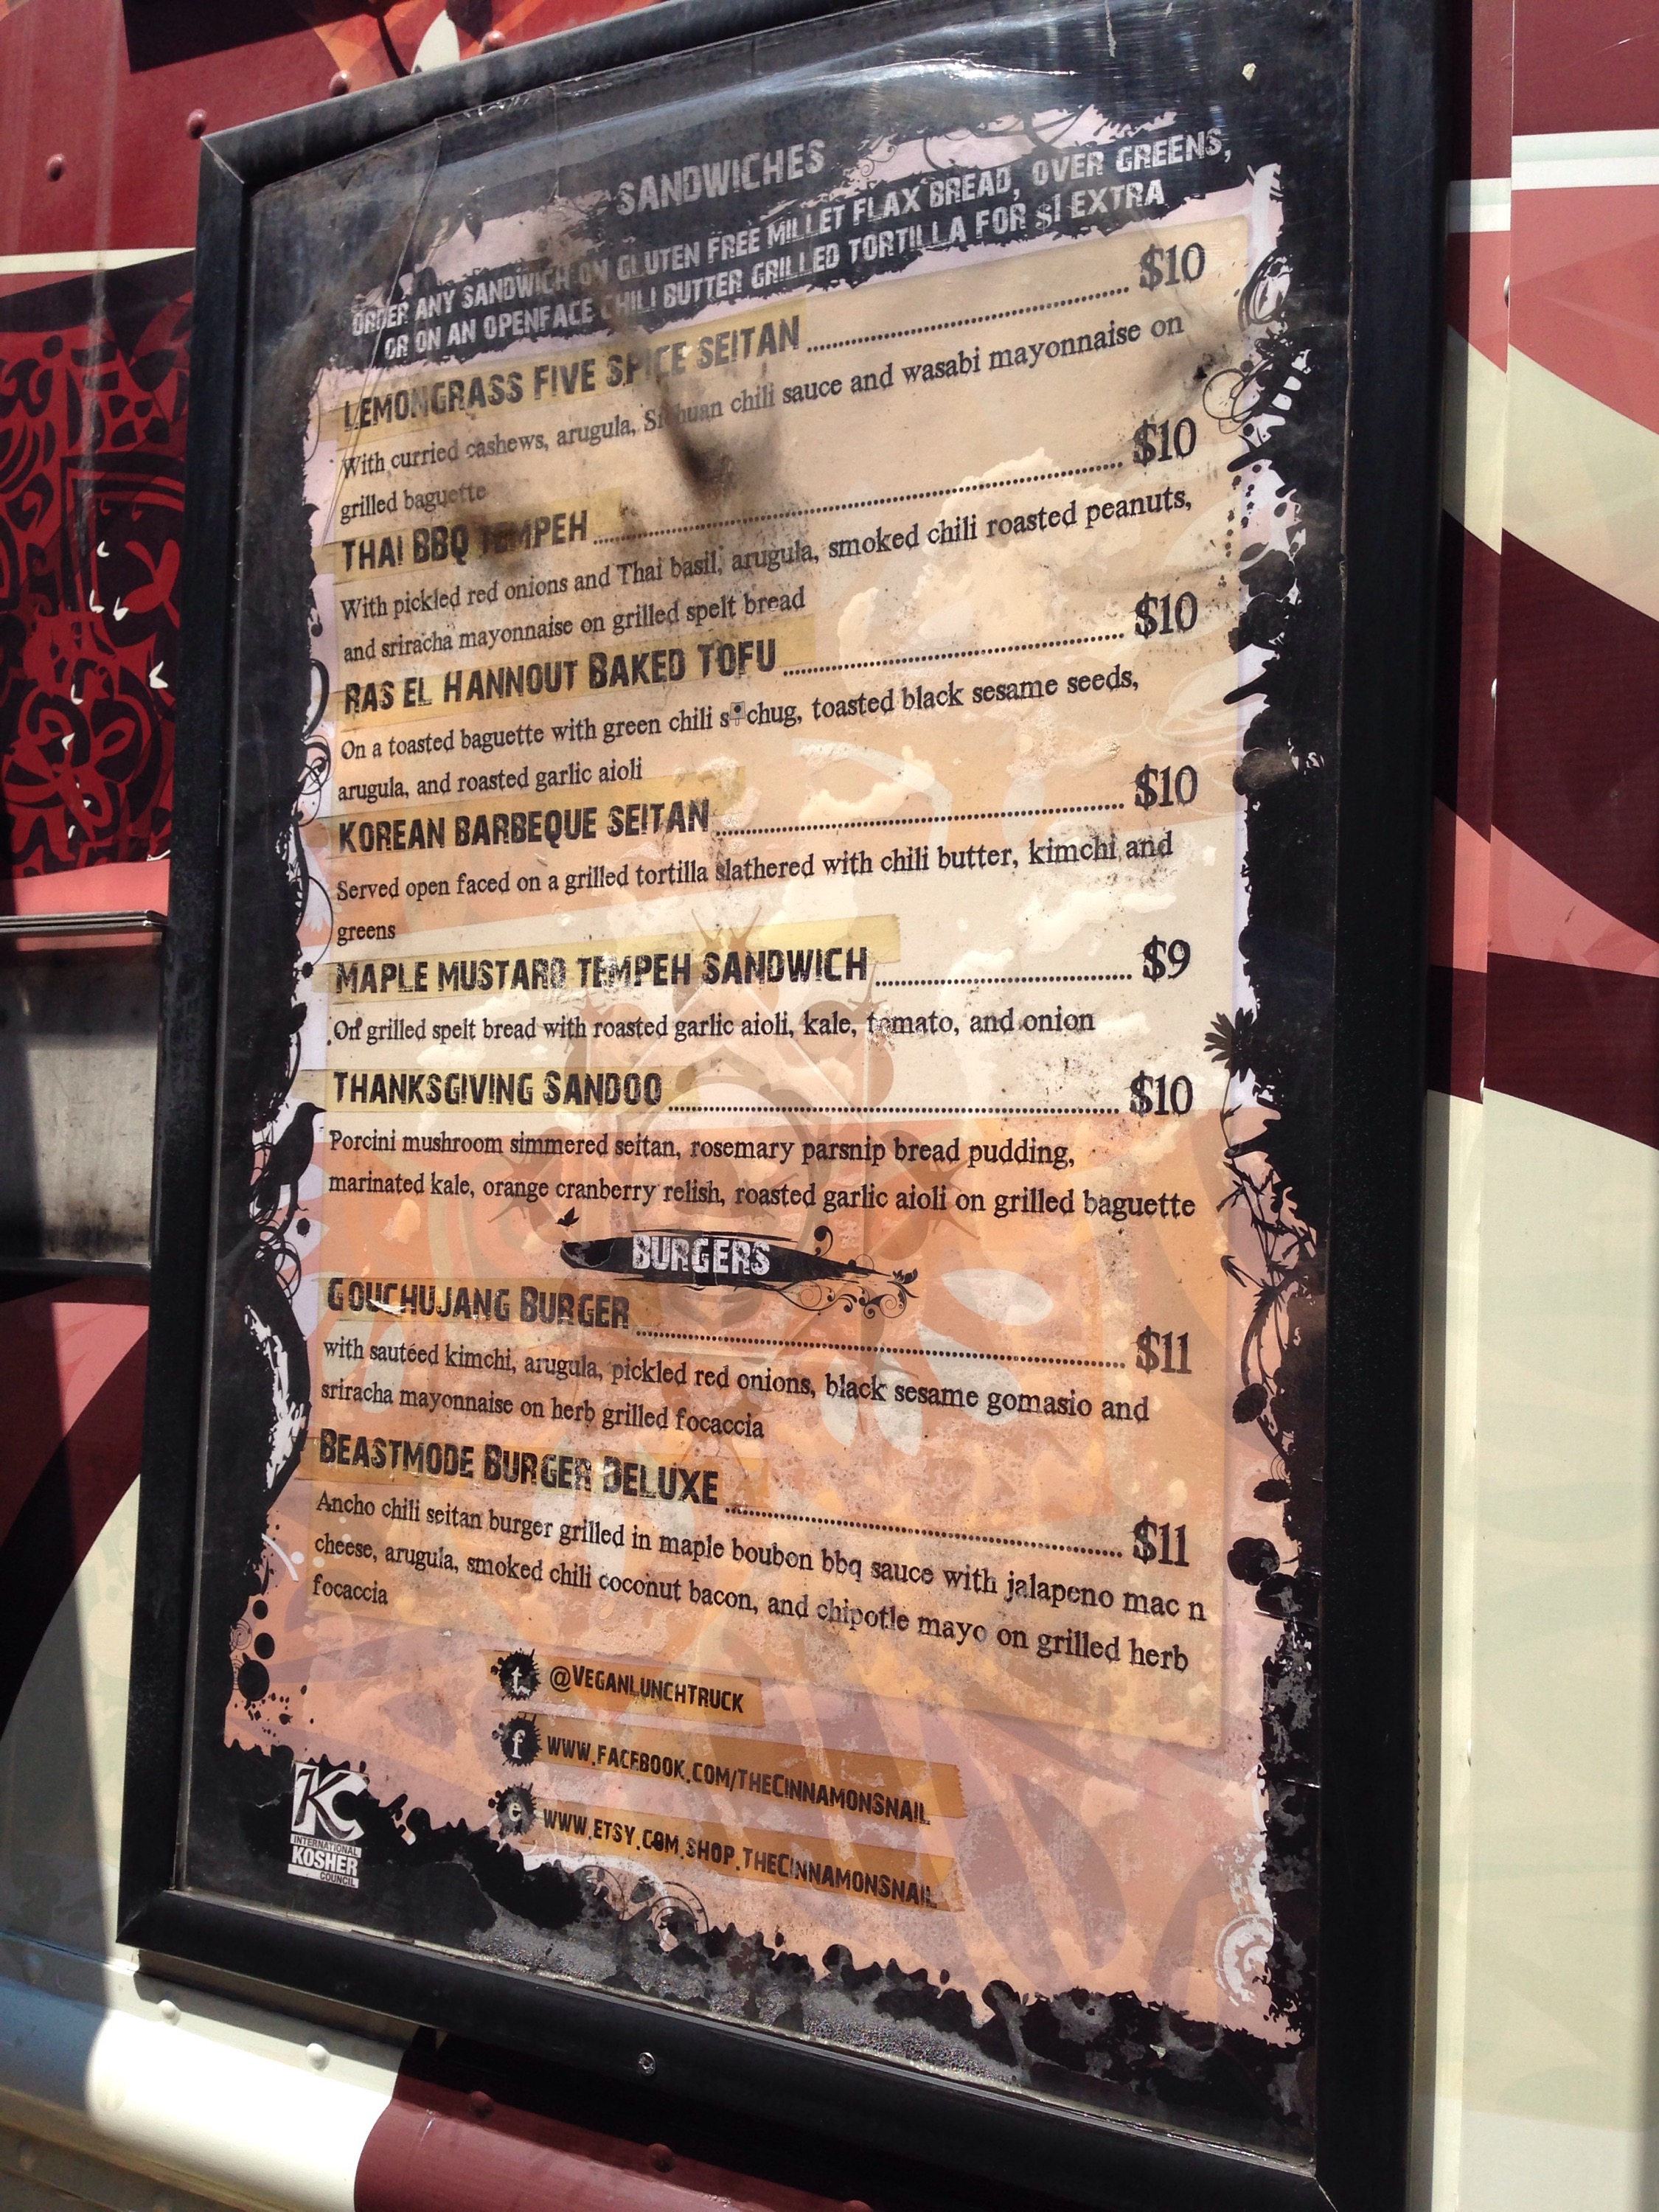 SANDWICHES
ORDER ANY SANDWICH ON GLUTEN FREE MILLET FLAX BREAD, OVER GREENS,
OR ON AN OPENFACE CHILI BUTTER GRILLED TORTILLA FOR $1 EXTRA
LEMONGRASS FIVE SPICE SEITAN $10
With curried cashews, arugula, Sichuan chili sauce and wasabi mayonnaise on
grilled baguette
THAI BBQ TEMPEH $10
With pickled red onions and Thai basil, arugula, smoked chili roasted peanuts,
and sriracha mayonnaise on grilled spelt bread
RAS EL HANNOUT BAKED TOFU $10
On a toasted baguette with green chili schug, toasted black sesame seeds,
arugula, and roasted garlic aioli
KOREAN BARBEQUE SEITAN $10
Served open faced on a grilled tortilla slathered with chili butter, kimchi and
greens
MAPLE MUSTARD TEMPEH SANDWICH $9
On grilled spelt bread with roasted garlic aioli, kale, tomato, and onion
THANKSGIVING SANDOO $10
Porcini mushroom simmered seitan, rosemary parsnip bread pudding,
marinated kale, orange cranberry relish, roasted garlic aioli on grilled baguette
BURGERS
GOUCHUJANG BURGER $11
with sautéed kimchi, arugula, pickled red onions, black sesame gomasio and
sriracha mayonnaise on herb grilled focaccia
BEASTMODE BURGER DELUXE $11
Ancho chili seitan burger grilled in maple boubon bbq sauce with jalapeno mac n
cheese, arugula, smoked chili coconut bacon, and chipotle mayo on grilled herb
focaccia
t @VEGANLUNCHTRUCK
f WWW.FACEBOOK.COM/THECINNAMONSNAIL
e WWW.ETSY.COM.SHOP.THECINNAMONSNAIL
KC
INTERNATIONAL
KOSHER
COUNCIL